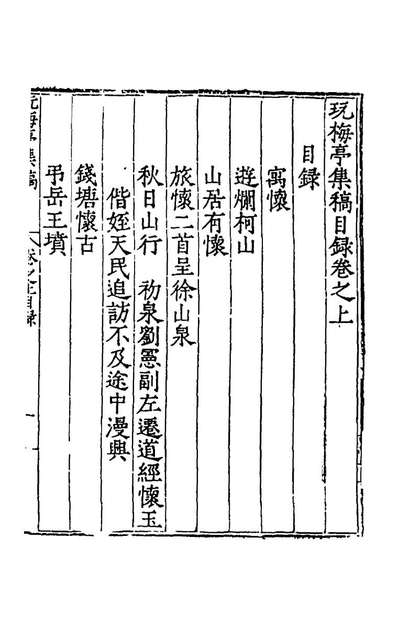 玩梅亭集稿目録卷之上
目録
寓懷
遊爛柯山
山居有懷
旅懷二首呈徐山泉
秋日山行 礿泉劉憲副左遷道經懷玉
偕姪天民追訪不及途中漫興
錢塘懷古
弔岳王墳
玩梅亭集稿 卷之上目録 一